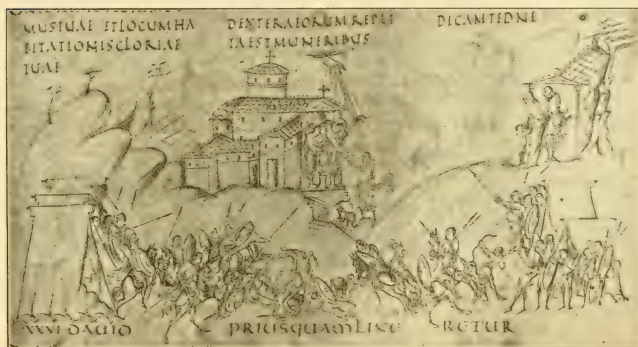 MUSTUAE ETLOCUMHA
BITATIONISGLORIAE
TUAE
DEXTERAEORUMREPLE
TAESTMUNERIBUS
DICAMTEDNE
XXVI DAUID PRIUSQUAMLINE RETUR